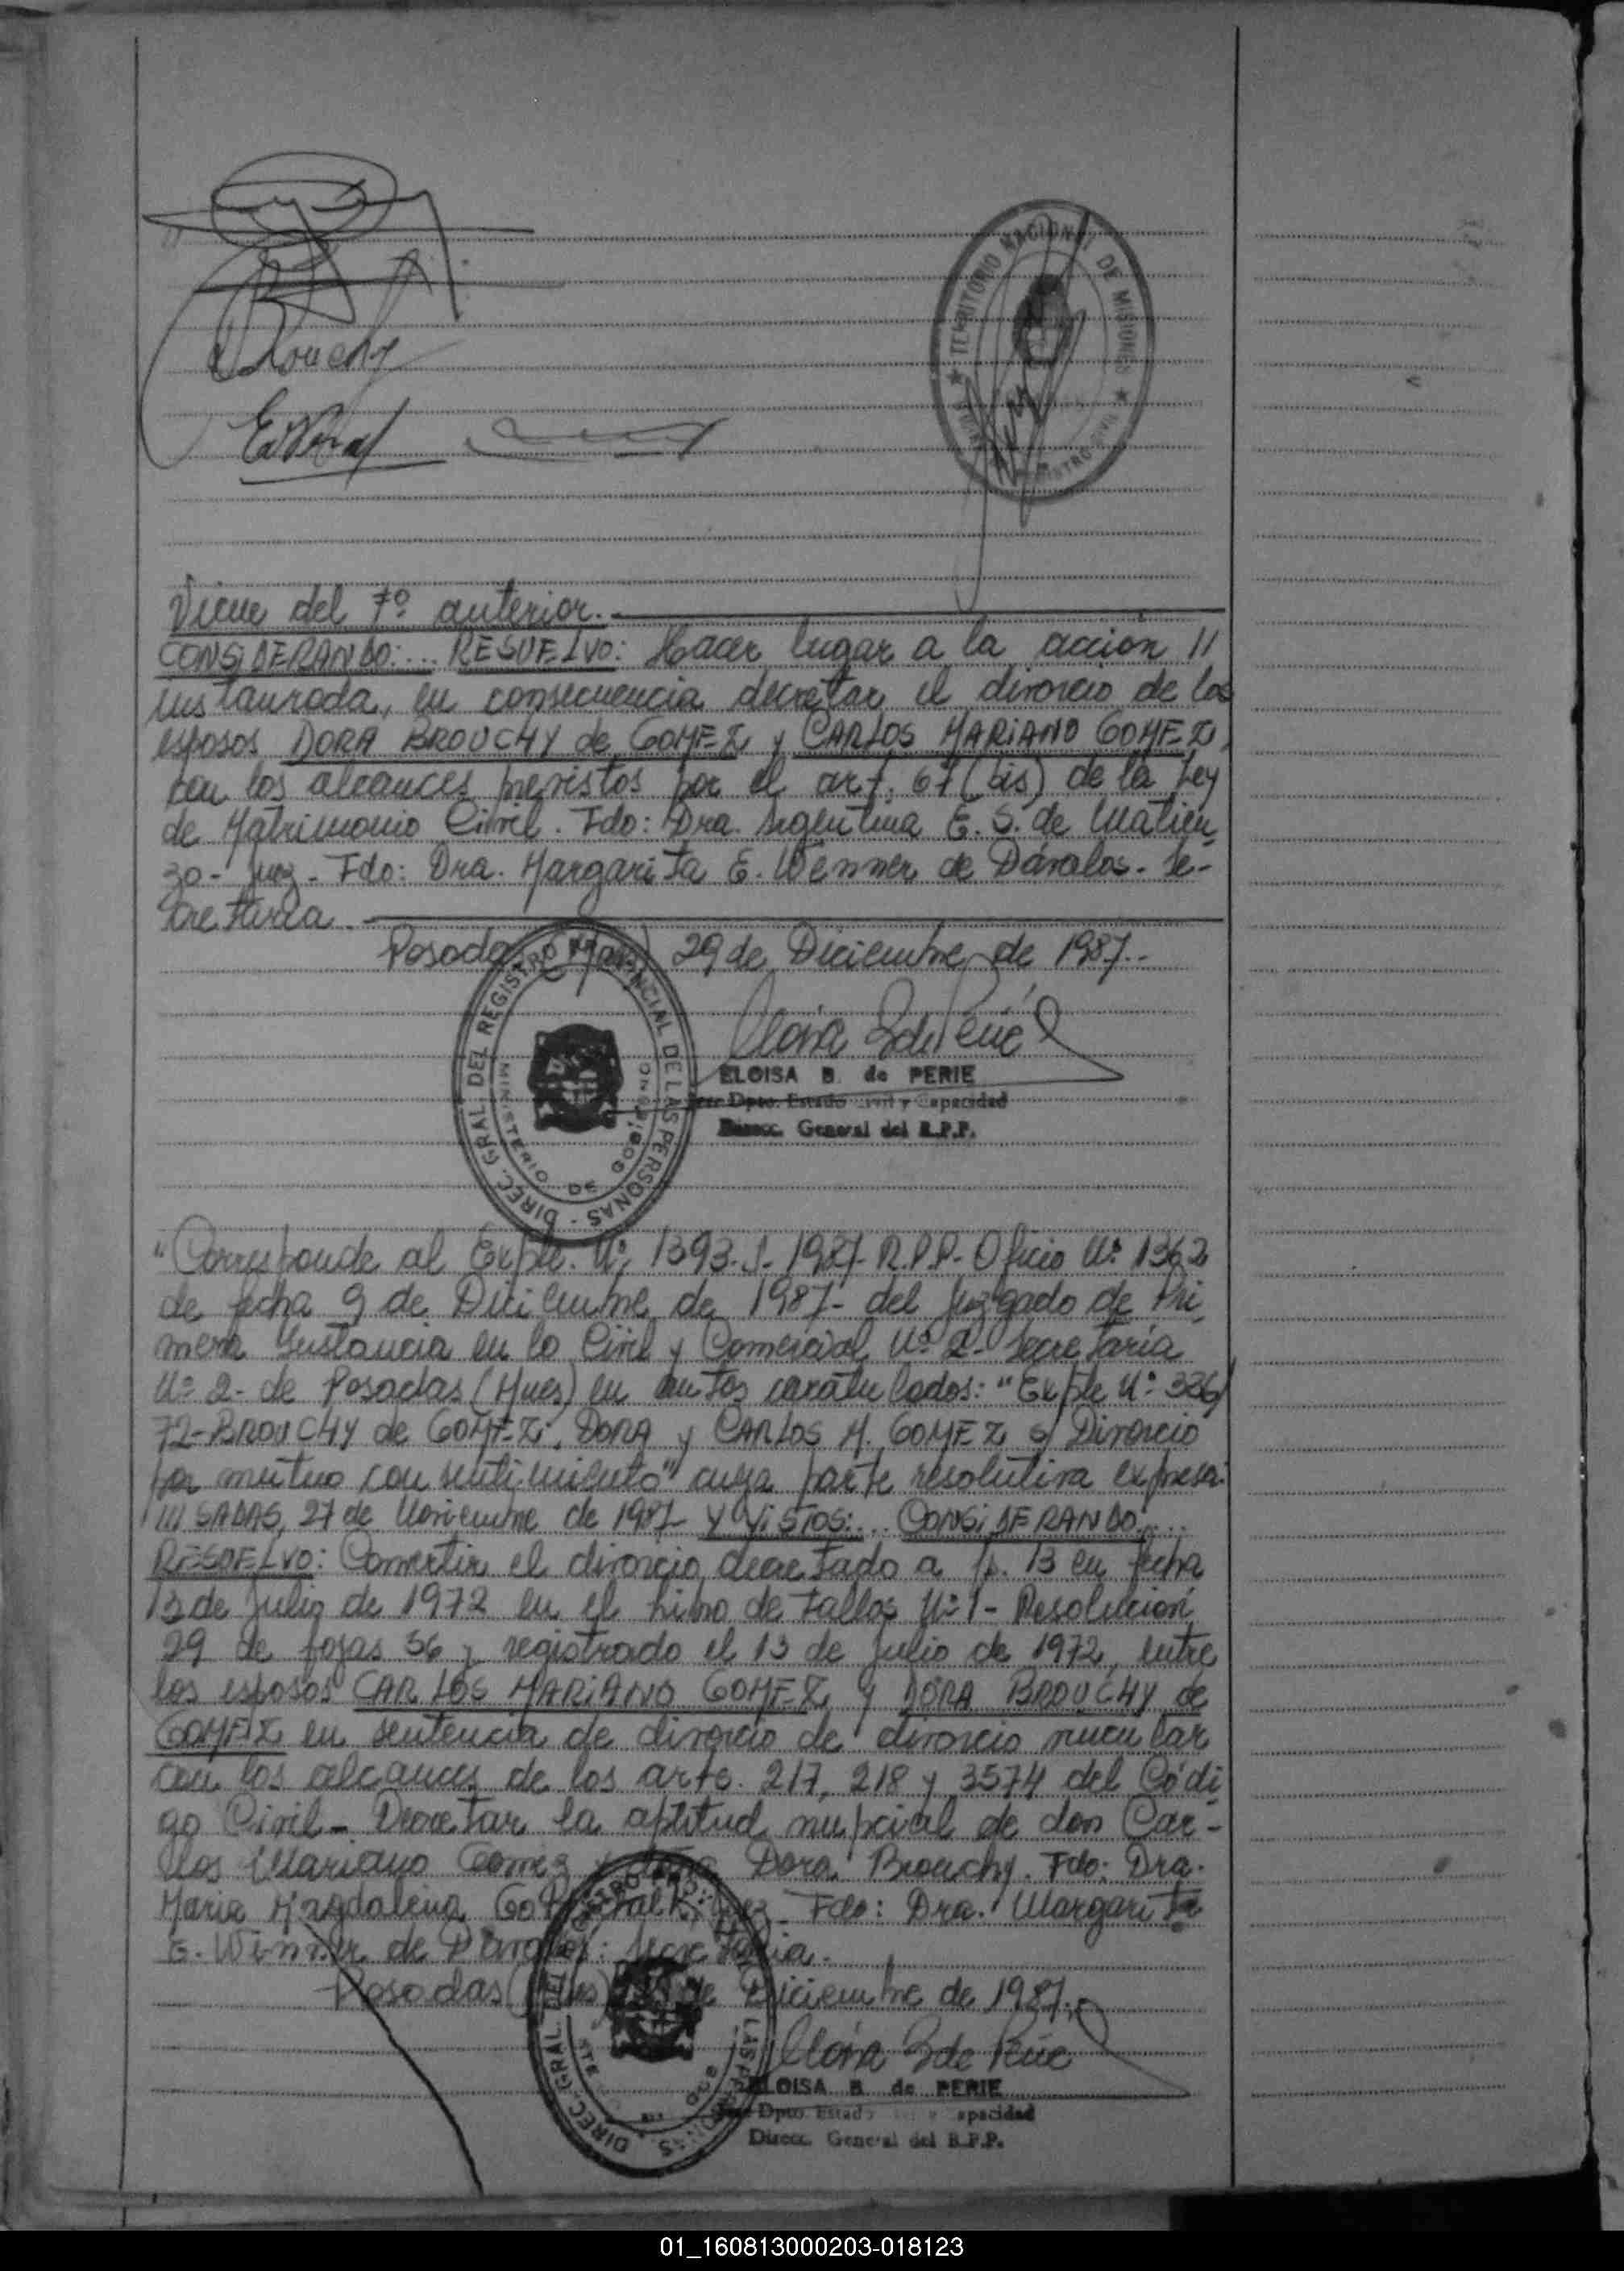 Brouchy
TERRITORIO NACIONAL DE MISIONES
Viene del Fº anterior.-
CONSIDERANDO:... RESUELVO: Hacer lugar a la acción //
instaurada, en consecuencia decretar el divorcio de los
esposos DORA BROUCHY de GOMEZ y CARLOS MARIANO GOMEZ,
con los alcances previstos por el art. 67 (bis) de la Ley
de Matrimonio Civil. Fdo: Dra. Argentina E. S. de Matien
zo - Juez - Fdo: Dra. Margarita E. Wenner de Dávalos - Se-
cretaria.
Posadas 29 de Diciembre de 1987.-
DIREC. GRAL. DEL REGISTRO PROVINCIAL DE LAS PERSONAS -
MINISTERIO DE GOBIERNO
ELOISA B. de PERIE
Dpto. Estado Civil y Capacidad
Direcc. General del R.P.P.
"Corresponde al Expte. Nº 1393-J-1987-R.P.P- Oficio Nº 1362
de fecha 9 de Diciembre de 1987- del Juzgado de Pri
mera Instancia en lo Civil y Comercial Nº 2- Secretaría
Nº 2- de Posadas (Mnes) en autos caratulados: "Expte Nº 336/
72-BROUCHY de GOMEZ, DORA y CARLOS M. GOMEZ s/ Divorcio
por mutuo consentimiento" cuya parte resolutiva expresa:
///SADAS, 27 de Noviembre de 1987- Y VISTOS:... CONSIDERANDO:...
RESUELVO: Convertir el divorcio decretado a fs. 13 en fecha
13 de Julio de 1972 en el Libro de Fallos Nº 1- Resolución
29 de fojas 36 y registrado el 13 de Julio de 1972, entre
los esposos CARLOS MARIANO GOMEZ y DORA BROUCHY de
GOMEZ en sentencia de divorcio de divorcio vincular
con los alcances de los arts. 217, 218 y 3574 del Códi
go Civil- Decretar la aptitud nupcial de don Car-
los Mariano Gomez y doña Dora Brouchy. Fdo: Dra.
Maria Magdalena Juez - Fdo: Dra. Margarita
E. Wenner de Dávalos: Secretaria.
Posadas (Mnes) de Diciembre de 1987.-
DIREC. GRAL. DEL
ELOISA B. de PERIE
Dpto. Estado Civil y Capacidad
Direcc. General del R.P.P.
01_160813000203-018123